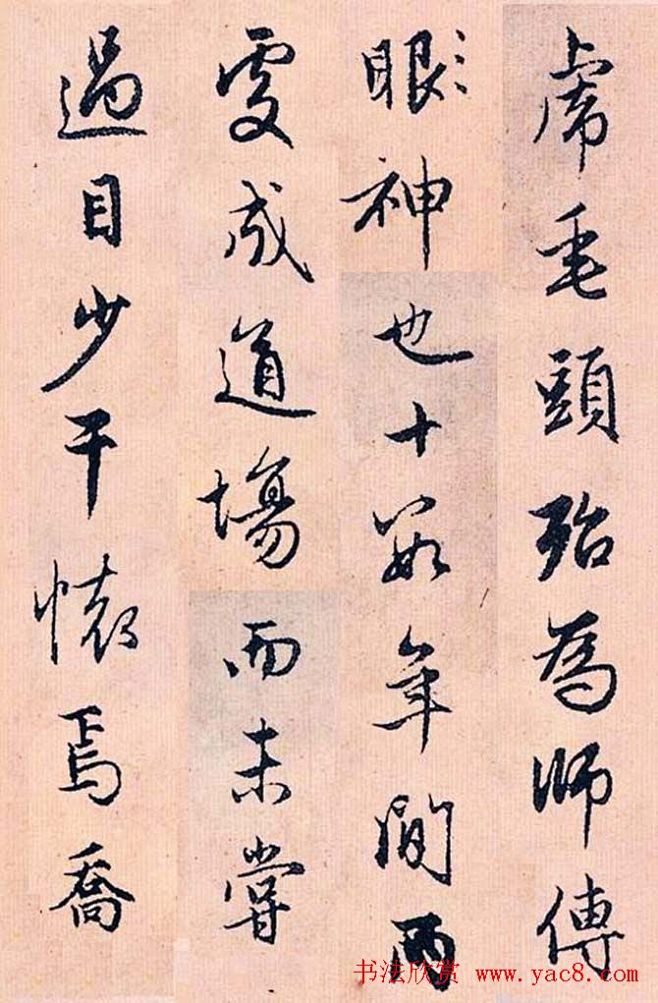 虎毛頭殆為師傅
眼神也十數年間兩
處成道場而未嘗
過目少干懷焉喬
书法欣赏 www.yac8.com